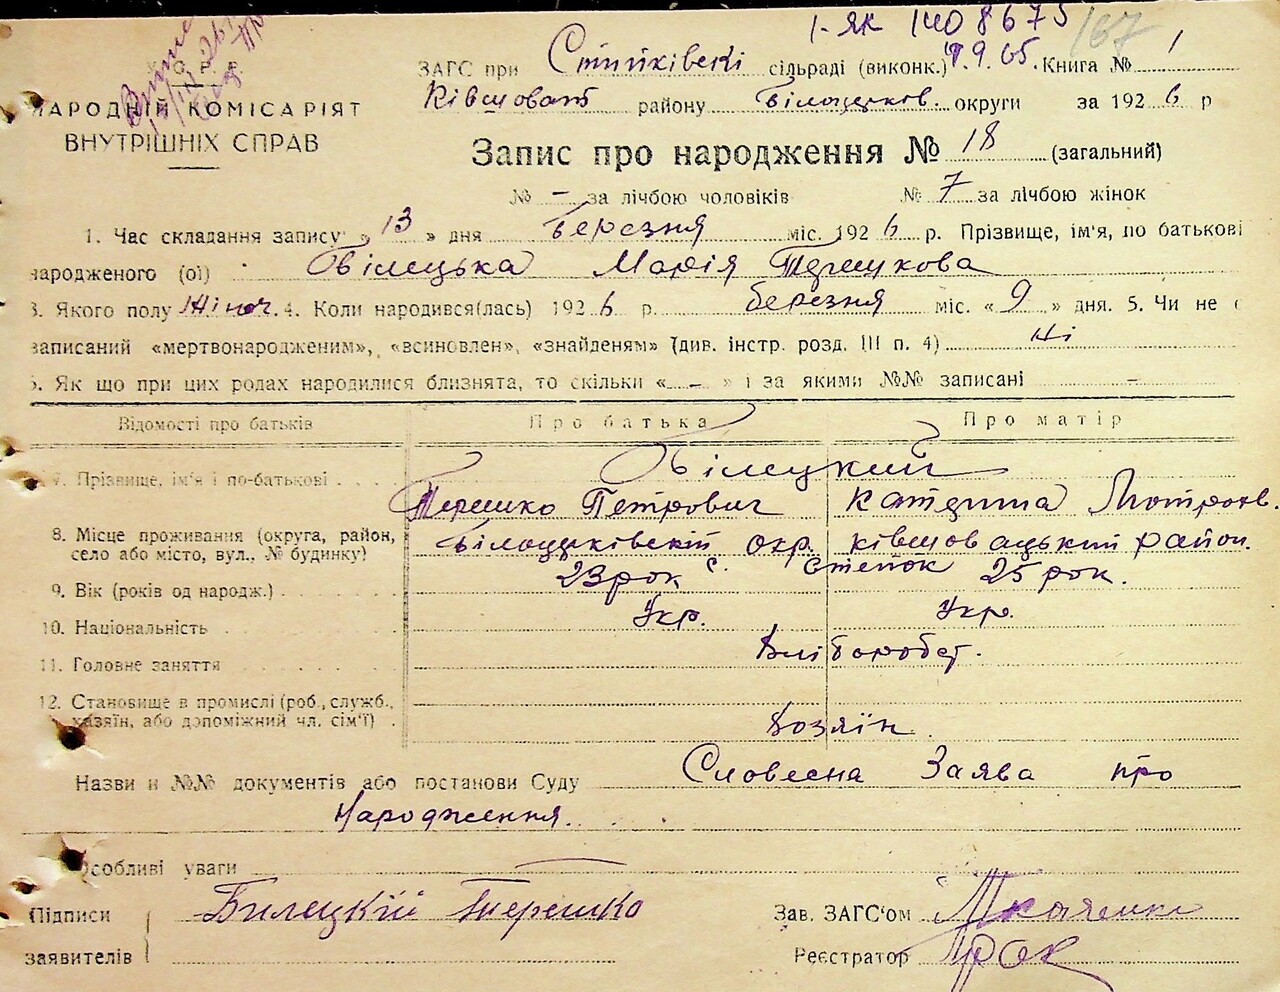 І-ЯК 1408675 167
У.С.Р.Р.
НАРОДНІЙ КОМІСАРІЯТ
ВНУТРІШНІХ СПРАВ
ЗАГС при Степківскі сільраді (виконк.) 9.9.65. Книга № 1
Ківшоват району Білоцерков. округи за 1926 р
Запис про народження № 18 (загальний)
№ – за лічбою чоловіків № 7 за лічбою жінок
1. Час складання запису «13» дня березня міс. 1926 р. Прізвище, ім'я, по батькові
народженого (ої) Білецька Марія Терешкова
3. Якого полу Жіноч. 4. Коли народився(лась) 1926 р. березня міс. «9» дня. 5. Чи не є
записаний «мертвонародженим», «всиновлен», «знайденям» (див. інстр. розд. III п. 4) Ні
6. Як що при цих родах народилися близнята, то скільки « – » і за якими №№ записані –
Відомості про батьків Про батька Про матір
7. Прізвище, ім'я і по-батькові Білецкий
Терешко Петрович Катерина Мотронв.
8. Місце проживання (округа, район, село або місто, вул., № будинку) Білоцерківскій окр. Ківшовацький район.
с. Степок
9. Вік (років од народж.) 23 рок 25 рок.
10. Національність Укр. Укр.
11. Головне заняття Хлібороб
12. Становище в промислі (роб., служб., хазяїн, або допоміжний чл. сім'ї) Хозяїн.
Назви и №№ документів або постанови Суду Словесна Заява про
Народження.
Особливі уваги
Підписи Билецкій Терешко Зав. ЗАГС'ом
заявителів Реєстратор